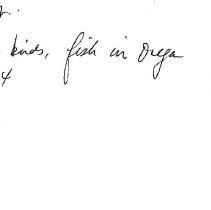 kinds, fish in Oregon
4